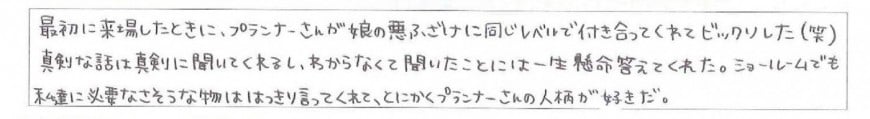 最初に来場したときに、プランナーさんが娘の悪ふざけに同じレベルで付き合ってくれてビックリした(笑)
真剣な話は真剣に聞いてくれるし、わからなくて聞いたことには一生懸命答えてくれた。ショールームでも
私達に必要なさそうな物ははっきり言ってくれて、とにかくプランナーさんの人柄が好きだ。